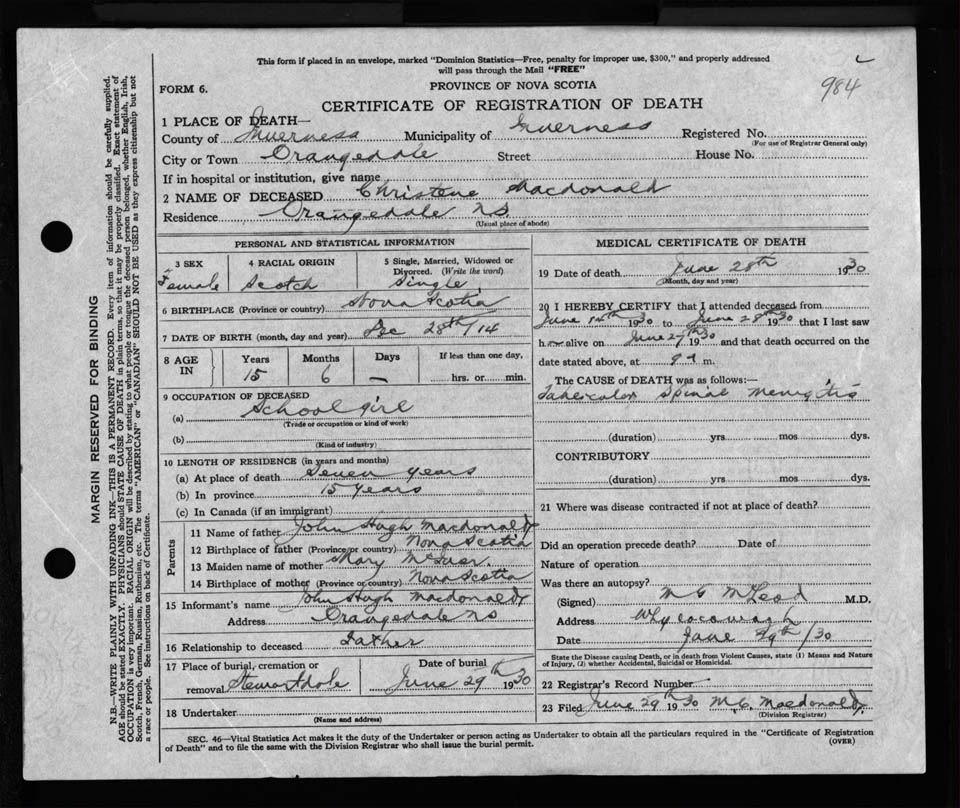 This form if placed in an envelope, marked "Dominion Statistics—Free, penalty for improper use, $300," and properly addressed
will pass through the Mail "FREE"
984
FORM 6.
PROVINCE OF NOVA SCOTIA
CERTIFICATE OF REGISTRATION OF DEATH
1 PLACE OF DEATH—
County of Inverness Municipality of Inverness Registered No.
(For use of Registrar General only)
City or Town Orangedale Street House No.
If in hospital or institution, give name
2 NAME OF DECEASED Christene Macdonald
Residence Orangedale NS.
(Usual place of abode)
PERSONAL AND STATISTICAL INFORMATION
3 SEX 4 RACIAL ORIGIN 5 Single, Married, Widowed or
Divorced. (Write the word)
Female Scotch Single
6 BIRTHPLACE (Province or country) Nova Scotia
7 DATE OF BIRTH (month, day and year) Dec 28th/14
8 AGE IN Years Months Days If less than one day,
15 6 — hrs. or min.
9 OCCUPATION OF DECEASED
(a) School girl
(Trade or occupation or kind of work)
(b)
(Kind of industry)
10 LENGTH OF RESIDENCE (in years and months)
(a) At place of death Seven years
(b) In province 15 years
(c) In Canada (if an immigrant)
Parents
11 Name of father John Hugh Macdonald
12 Birthplace of father (Province or country) Nova Scotia
13 Maiden name of mother Mary
14 Birthplace of mother (Province or country) Nova Scotia
15 Informant's name John Hugh Macdonald
Address Orangedale NS
16 Relationship to deceased Father
17 Place of burial, cremation or Date of burial
removal Stewartdale June 29th 1930
18 Undertaker
(Name and address)
MEDICAL CERTIFICATE OF DEATH
19 Date of death June 28th 1930
(Month, day and year)
20 I HEREBY CERTIFY that I attended deceased from
June 14th 1930 to June 28th 1930 that I last saw
h alive on June 27th 1930 and that death occurred on the
date stated above, at 9 a m.
The CAUSE OF DEATH was as follows:—
Tubercular Spinal Meningitis
(duration) yrs mos dys.
CONTRIBUTORY
(duration) yrs mos dys.
21 Where was disease contracted if not at place of death?
Did an operation precede death? Date of
Nature of operation
Was there an autopsy?
(Signed) M G McLeod M.D.
Address Whycocomagh
Date June 29th/30
State the Disease causing Death, or in death from Violent Causes, state (1) Means and Nature
of Injury, (2) whether Accidental, Suicidal or Homicidal.
22 Registrar's Record Number
23 Filed June 29th 1930 M.C. Macdonald
(Division Registrar)
SEC. 46—Vital Statistics Act makes it the duty of the Undertaker or person acting as Undertaker to obtain all the particulars required in the "Certificate of Registration
of Death" and to file the same with the Division Registrar who shall issue the burial permit.
(OVER)
MARGIN RESERVED FOR BINDING
N.B.—WRITE PLAINLY WITH UNFADING INK—THIS IS A PERMANENT RECORD. Every item of information should be carefully supplied.
AGE should be stated EXACTLY. PHYSICIANS should STATE CAUSE OF DEATH in plain terms, so that it may be properly classified. Exact statement of
OCCUPATION is very important. RACIAL ORIGIN will be described by stating to what people or tongue the deceased person belonged, whether English, Irish,
Scotch, French, German, Russian, Ruthenian, etc. The terms "AMERICAN" or "CANADIAN" SHOULD NOT BE USED as they express citizenship but not
a race or people. See instructions on back of Certificate.